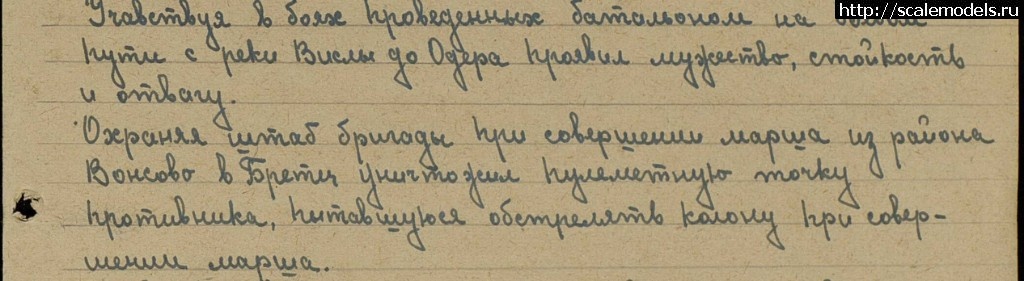 http://scalemodels.ru
Учавствуя в боях проведенных батальоном на
пути с реки Вислы до Одера проявил мужество, стойкость
и отвагу.
Охраняя штаб бригады при совершении марша из района
Вонсово в Бретц уничтожил пулеметную точку
противника, пытавшуюся обстрелять колону при совер-
шении марша.